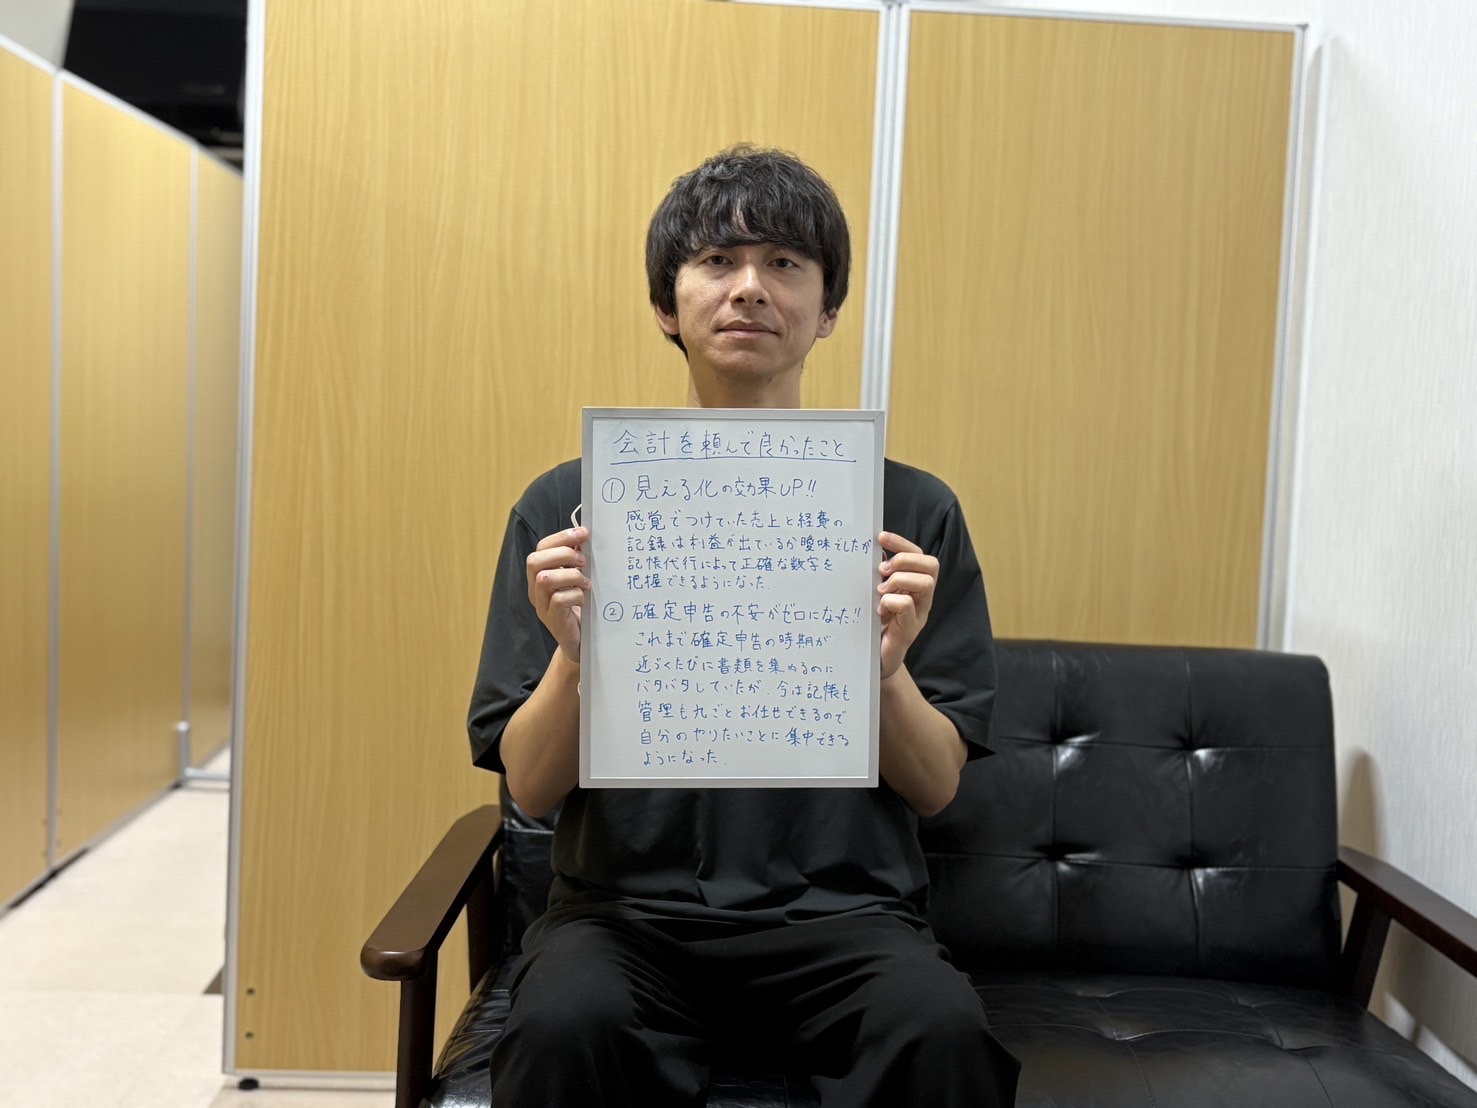 会計を頼んで良かったこと
① 見える化の効果UP!!
感覚でつけていた売上と経費の
記録は利益が出ているか曖昧でしたが
記帳代行によって正確な数字を
把握できるようになった.
② 確定申告の不安がゼロになった!!
これまで確定申告の時期が
近づくたびに書類を集めるのに
バタバタしていたが、今は記帳も
管理も丸ごとお任せできるので
自分のやりたいことに集中できる
ようになった.